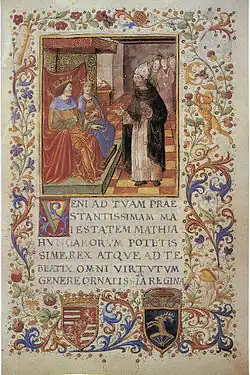 VENI AD TVAM PRAE
STANTISSIMAM MA
IESTATEM MATHIA
HVNGARORVM POTĒTIS
SIME REX ATQVE AD TE
BEATIX OMNI VIRTVTVM
GENERE ORNATISSIA REGINA